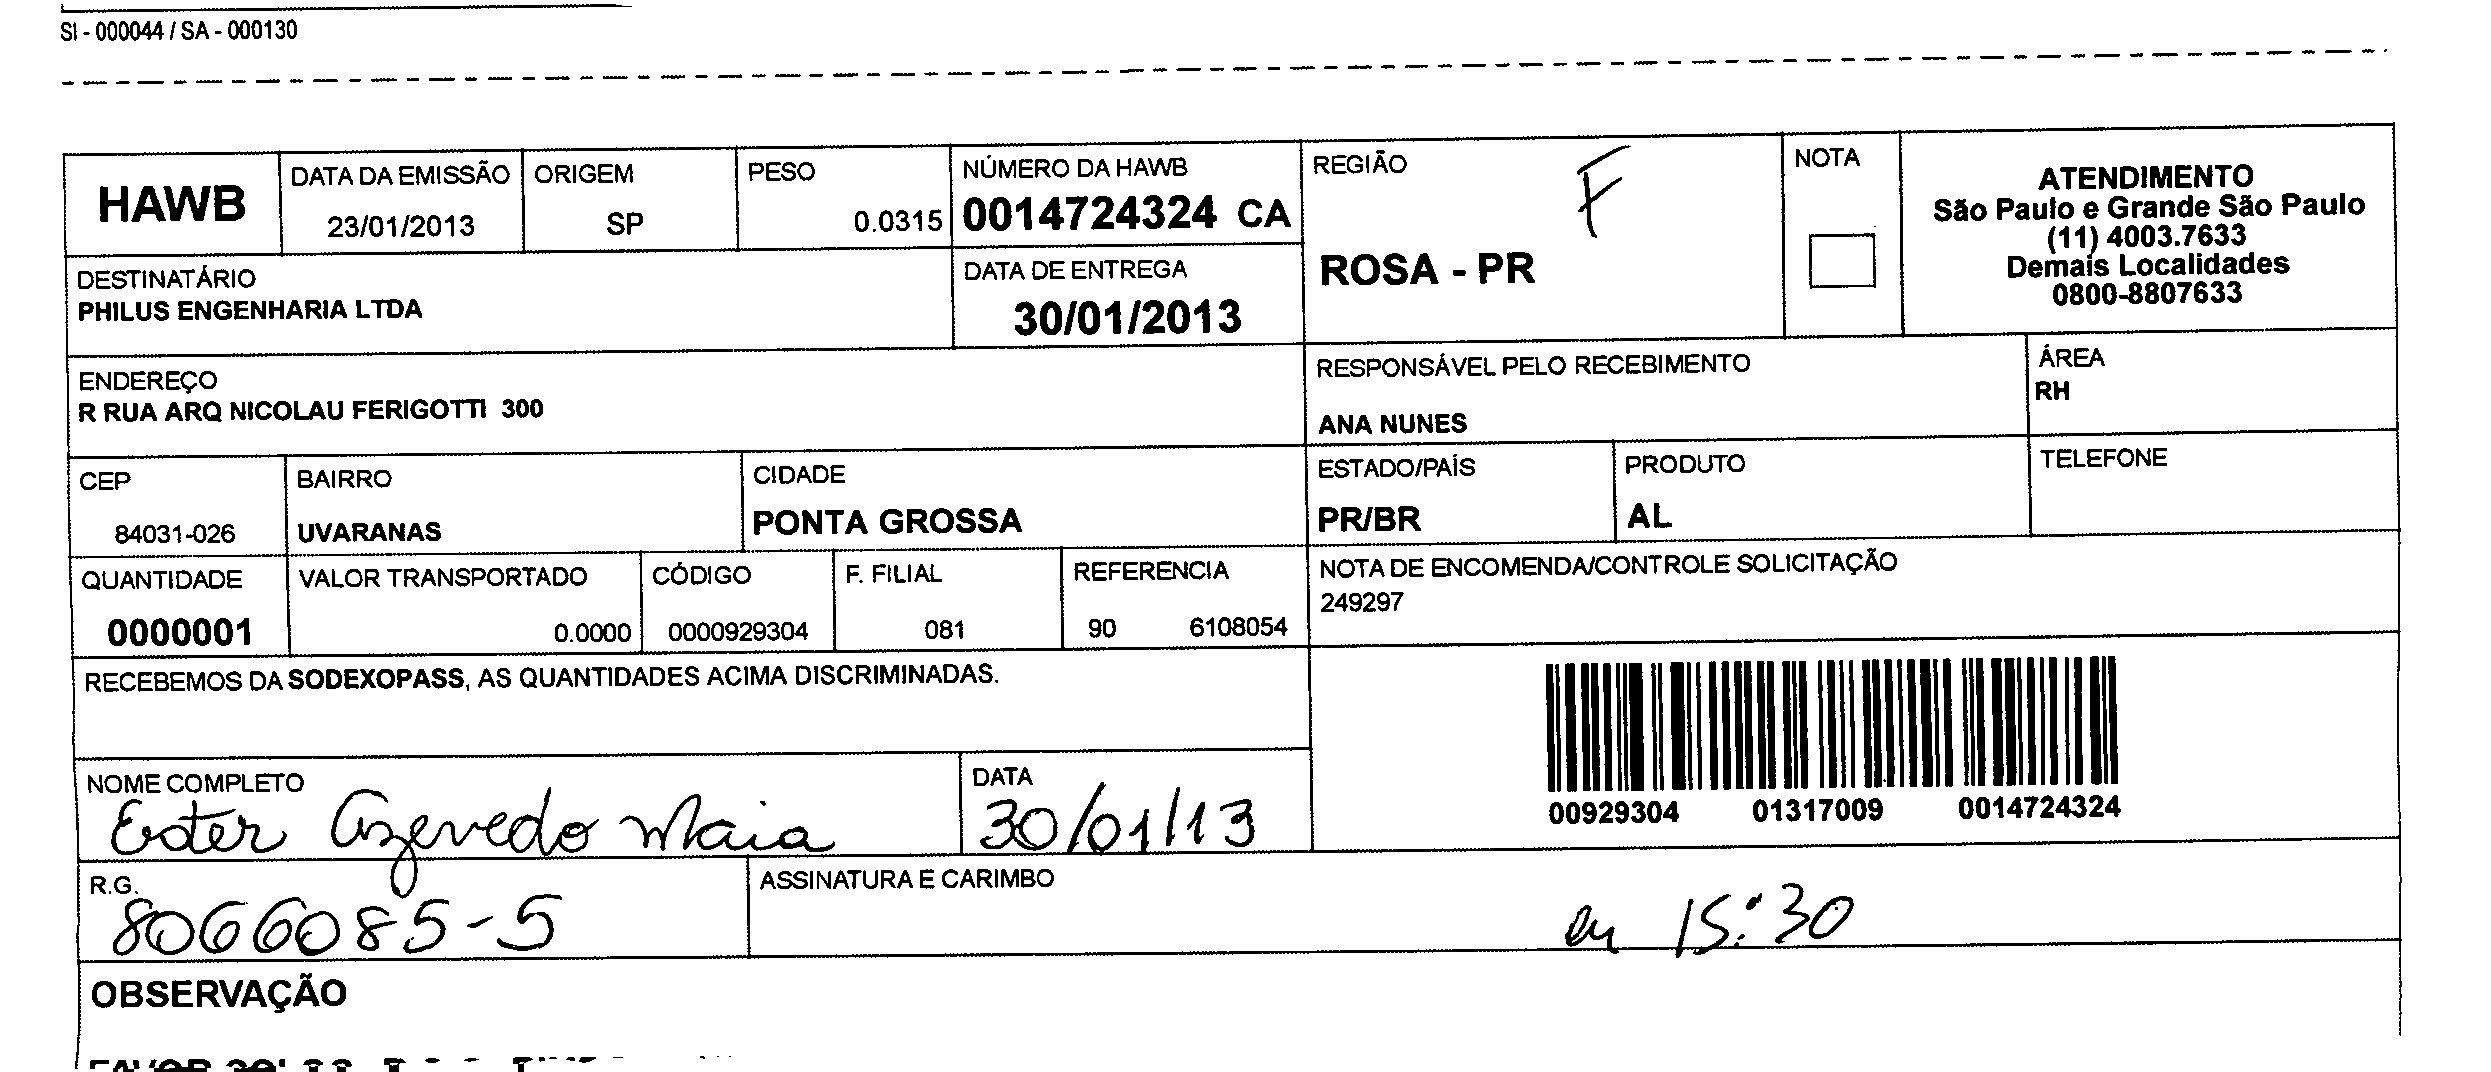 SI - 000044 / SA - 000130
HAWB
DATA DA EMISSÃO
23/01/2013
ORIGEM
SP
PESO
0.0315
NÚMERO DA HAWB
0014724324 CA
REGIÃO
F
ROSA - PR
NOTA
ATENDIMENTO
São Paulo e Grande São Paulo
(11) 4003.7633
Demais Localidades
0800-8807633
DESTINATÁRIO
PHILUS ENGENHARIA LTDA
DATA DE ENTREGA
30/01/2013
ENDEREÇO
R RUA ARQ NICOLAU FERIGOTTI 300
RESPONSÁVEL PELO RECEBIMENTO
ANA NUNES
ÁREA
RH
CEP
84031-026
BAIRRO
UVARANAS
CIDADE
PONTA GROSSA
ESTADO/PAÍS
PR/BR
PRODUTO
AL
TELEFONE
QUANTIDADE
0000001
VALOR TRANSPORTADO
0.0000
CÓDIGO
0000929304
F. FILIAL
081
REFERENCIA
90 6108054
NOTA DE ENCOMENDA/CONTROLE SOLICITAÇÃO
249297
RECEBEMOS DA SODEXOPASS, AS QUANTIDADES ACIMA DISCRIMINADAS.
00929304 01317009 0014724324
NOME COMPLETO
Ester Azevedo Maia
DATA
30/01/13
R.G.
8066085-5
ASSINATURA E CARIMBO
15:30
OBSERVAÇÃO